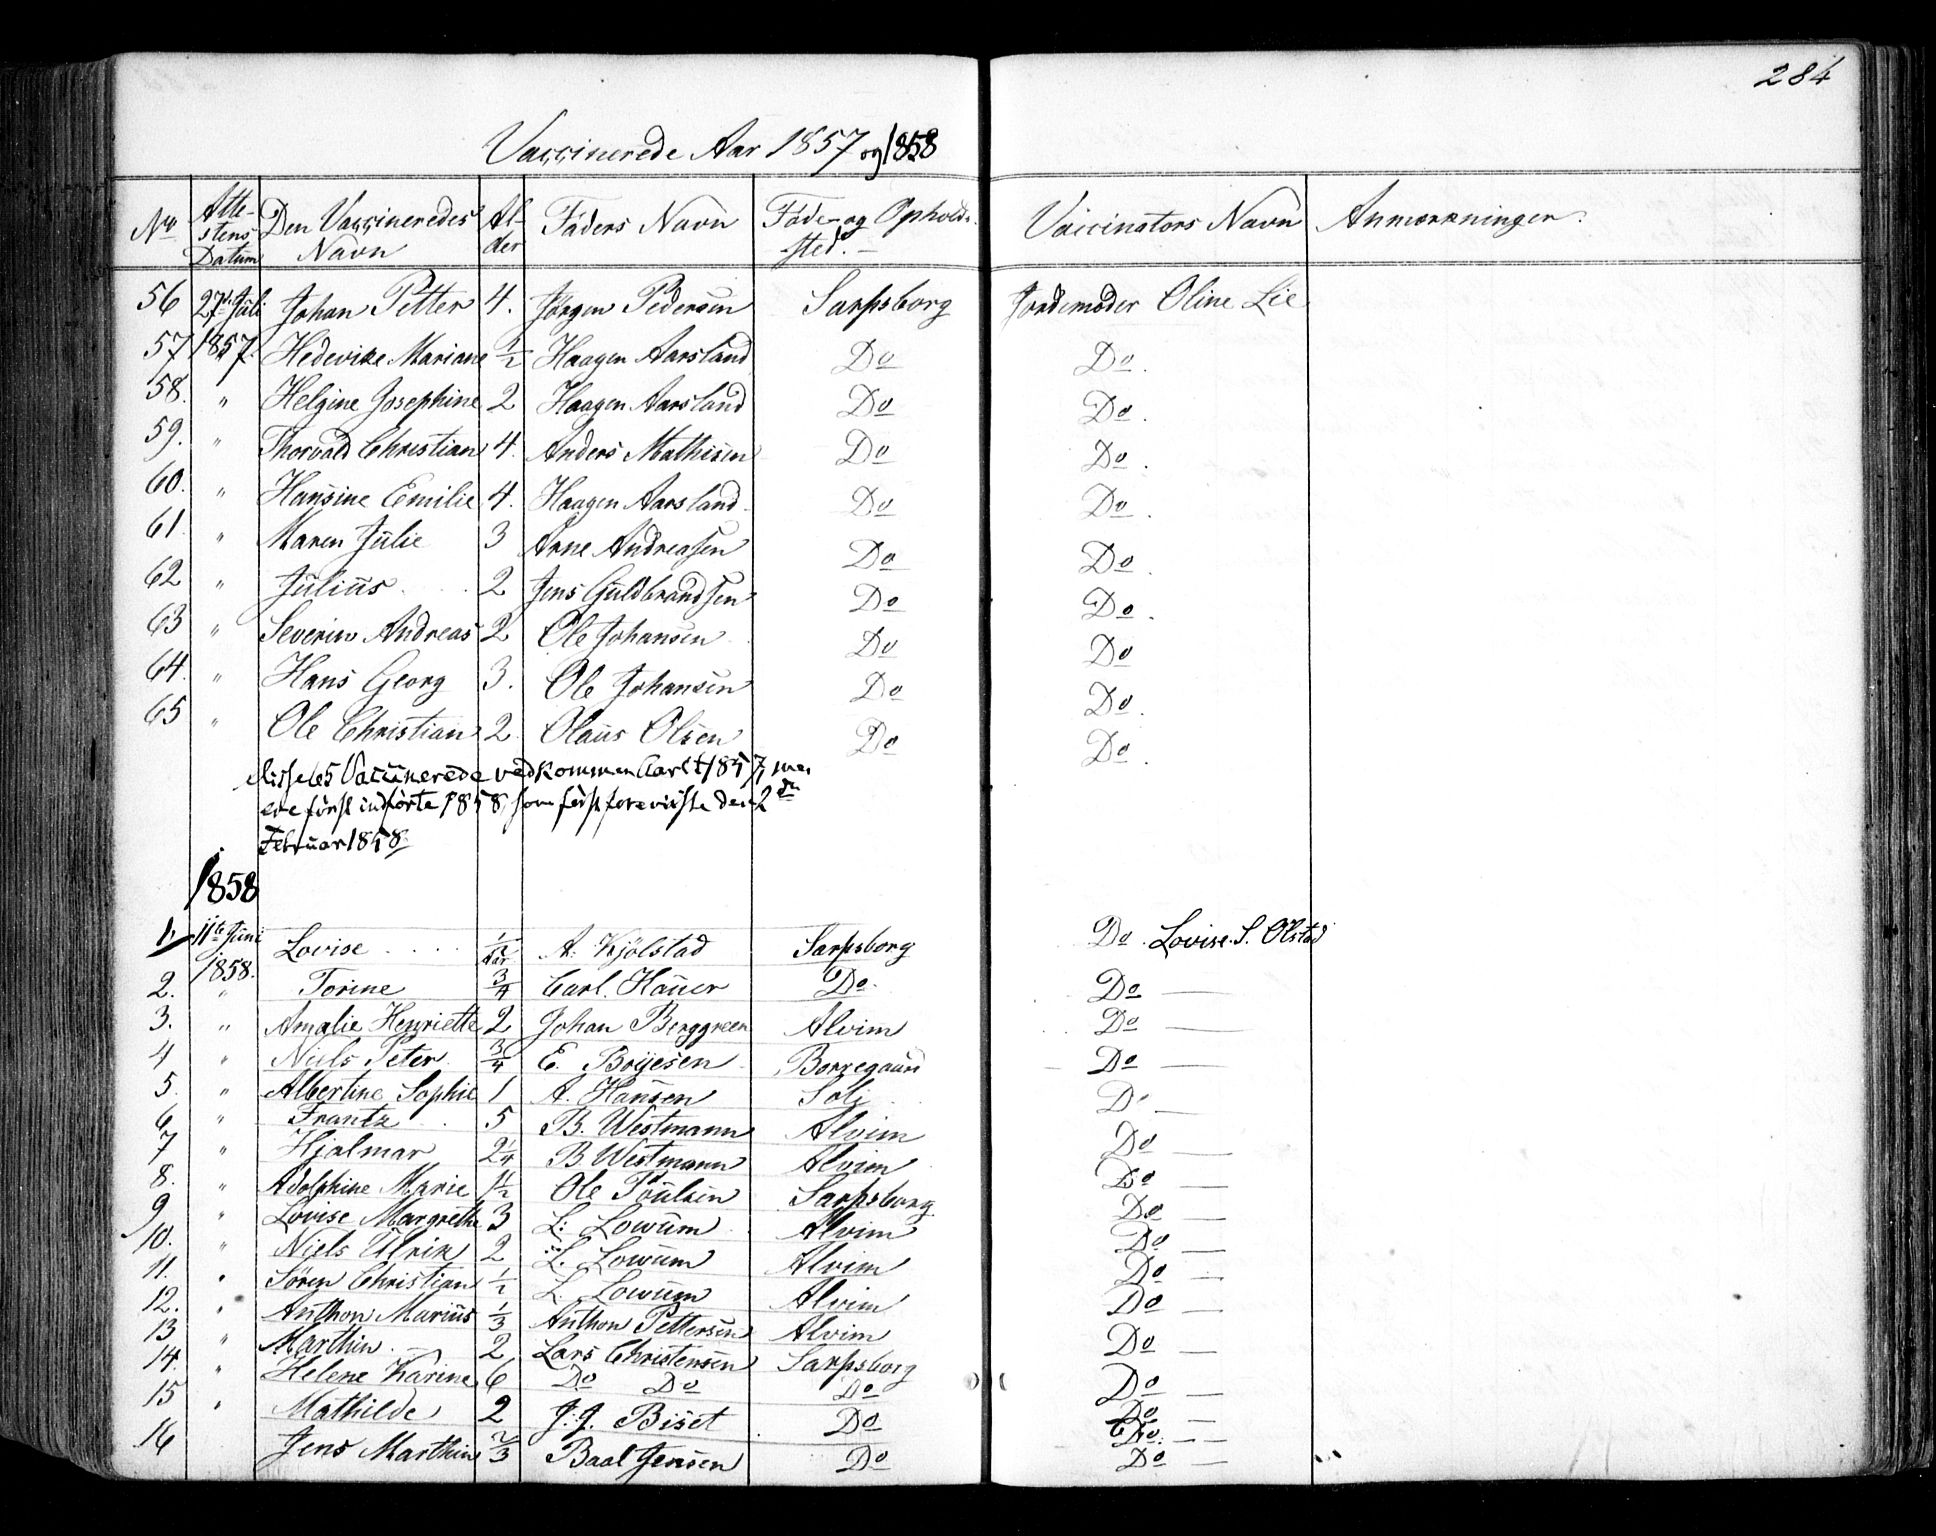 284
Vaccinerede Aar 1857 og 1858
No | Attestens Datum | Den Vaccineredes Navn | Alder | Faders Navn | Føde- og Opholdssted. | Vaccinators Navn | Anmærkninger.
56 27de Juli 1857. Johan Petter 4. Jørgen Pedersen Sarpsborg Jordemoder Oline Lie
57 " Hedevike Mariane 1/2 Haagen Aarsland Do Do.
58. " Helgine Josephine 2 Haagen Aarsland Do Do.
59. " Thorvald Christian 4. Anders Mathisen Do Do.
60. " Hansine Emilie 4. Haagen Aarsland Do Do.
61. " Maren Julie 3 Arne Andreasen Do Do.
62 " Julius 2 Jens Guldbrandsen Do Do.
63 " Severin Andreas 2 Ole Johansen Do Do
64. " Hans Georg 3. Ole Johansen Do Do.
65 " Ole Christian 2 Olaus Olsen Do Do.
disse 65 Vaccinerede vedkommen Aaret 1857, men
ere først indførte 1858, som først foreviiste den 2den
Februar 1858.
1858
1. 11te Juni 1858. Lovise 1/2 Aar A. Kjölstad Sarpsborg Do. Lovise S. Olstad
2. " Torine 3/4 Carl. Hauer Do. Do —
3. " Amalie Henriette 2 Johan Berggreen Alvim Do —
4 " Niels Peter 3/4 E. Boyesen Borregaard Do —
5. " Albertine Sophie 1 A. Hansen Soli Do —
6 " Frantz 5 B. Westmann Alvim Do —
7 " Hjalmar 2 1/4 B Westmann Alvim Do —
8. " Adolphine Marie 1 1/2 Ole Poulsen Sarpsborg Do —
9 " Lovise Margrethe 3 L: Lowum Alvim Do —
10. " Niels Ulrik 2 L. Lowum Alvim Do —
11. " Sören Christian 1/2 L. Lowum Alvim Do —
12. " Anthon Marius 1/3 Anthon Pettersen Alvim Do —
13 " Marthin 2 Lars Christensen Sarpsborg Do —
14. " Helene Karine 6 Do Do Do Do —
15 " Mathilde 2 J. J. Biset Do Do. —
16 Jens Marthin 2/3 Baal Jensen Do Do —